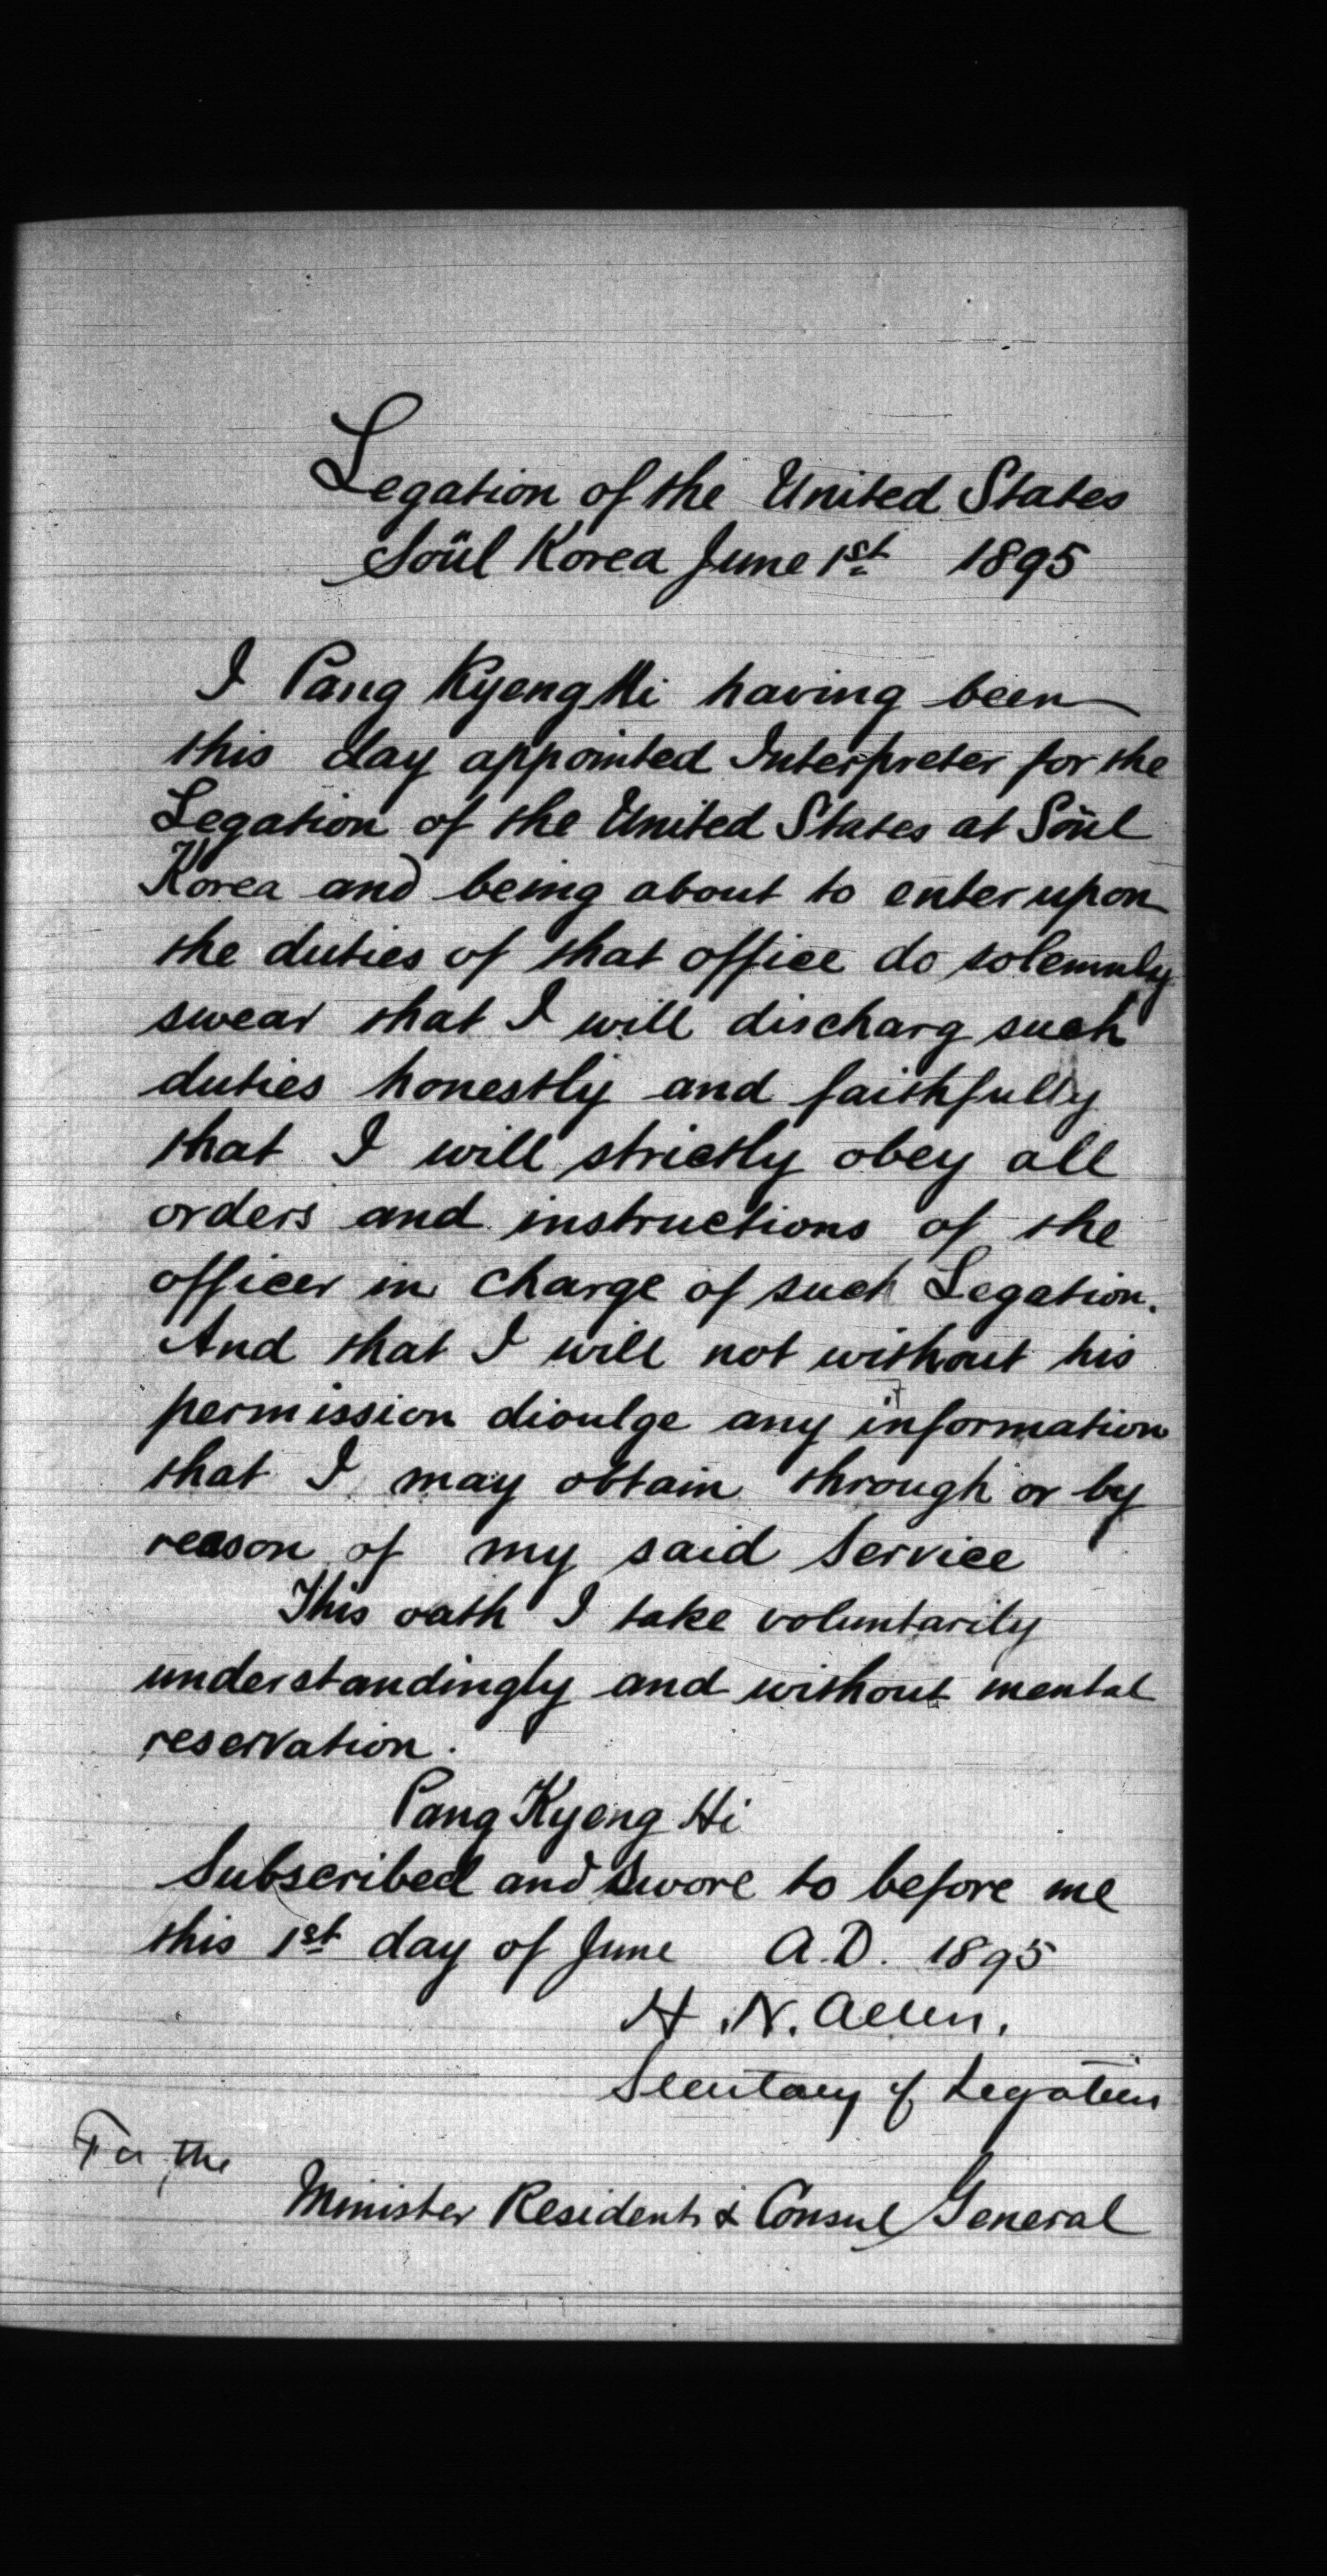 Legation of the United States
Söül Korea June 1st 1895
I Pang Kyeng Hi having been
this day appointed Interpreter for the
Legation of the United States at Söul
Korea and being about to enter upon
the duties of that office do solemnly
swear that I will discharg such
duties honestly and faithfully
that I will strictly obey all
orders and instructions of the
officer in charge of such Legation.
And that I will not without his
permission divulge any information
that I may obtain through or by
reason of my said Service
This oath I take voluntarily
understandingly and without mental
reservation.
Pang Kyeng Hi
Subscribed and Swore to before me
this 1st day of June A.D. 1895
H. N. Allen.
Secretary of Legation
For the
Minister Resident & Consul General